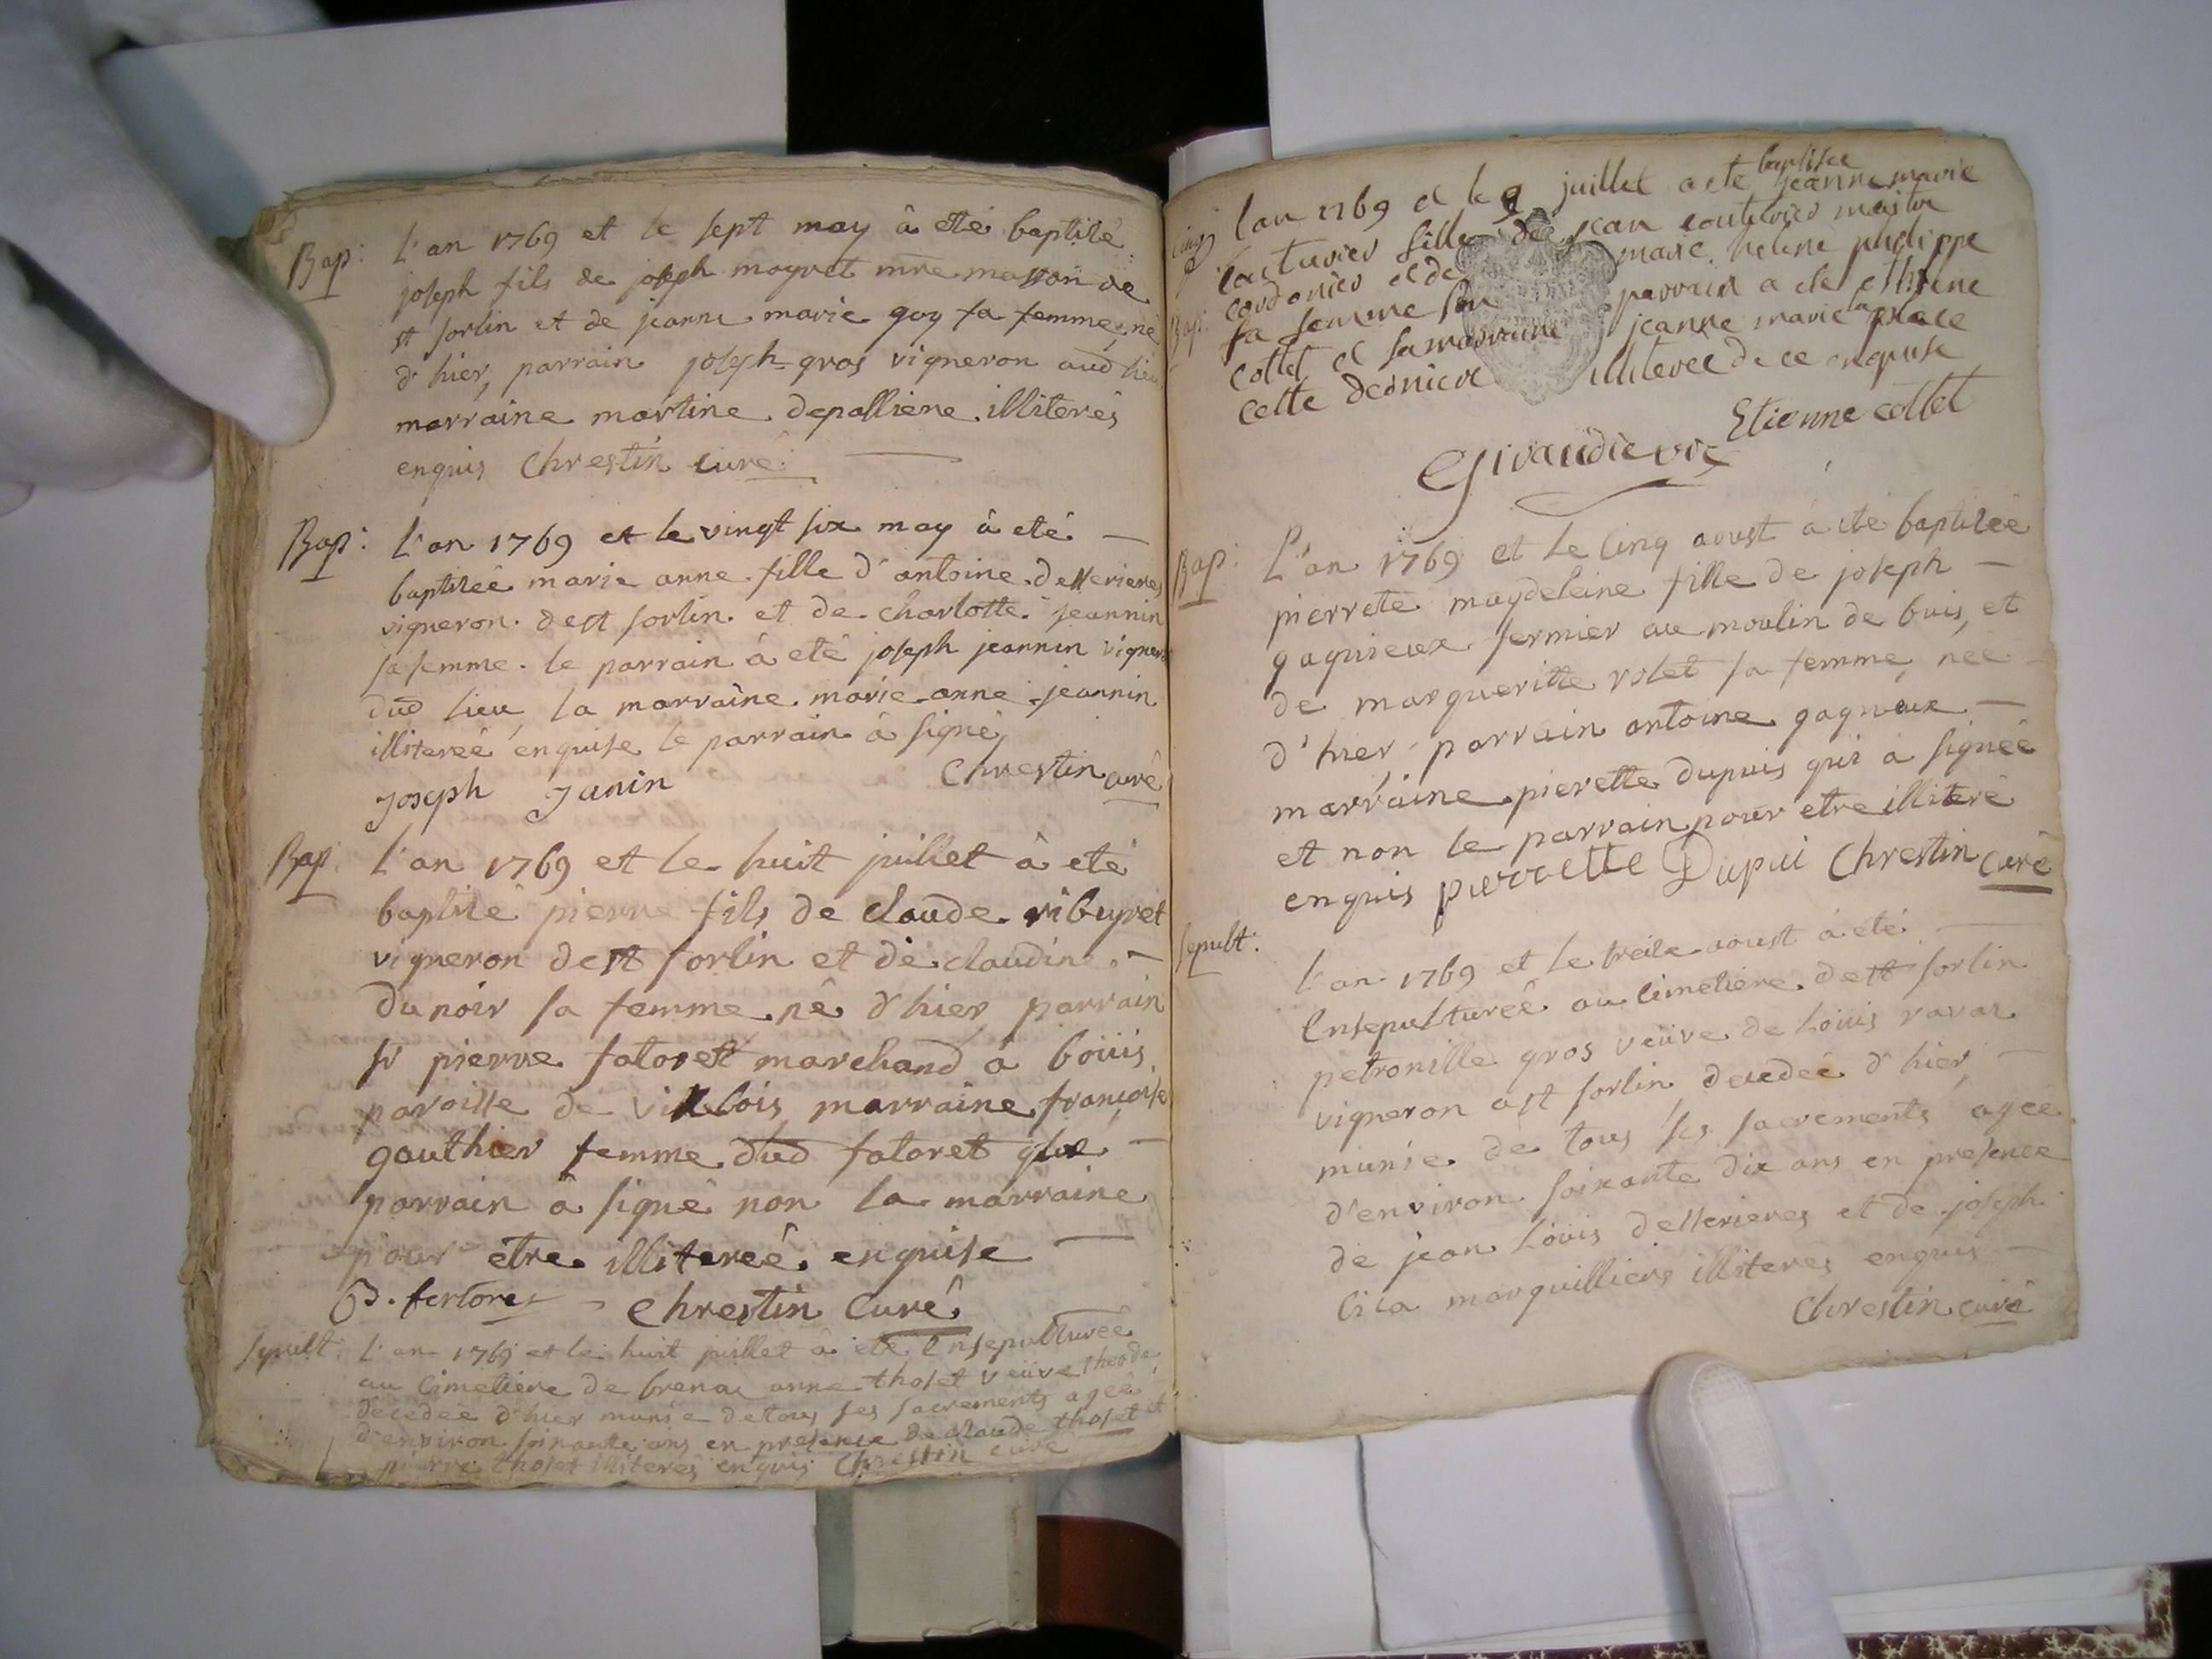 Bap: L'an 1769 et le sept may â eté baptisé
joseph fils de joseph moyret mre masson de
st sorlin et de jeanne marie guy sa femme, né
d'hier, parrain joseph gros vigneron aud lieu
marraine martine depalliere illiterés
enquis Chrestin curé
Bap: L'an 1769 et le vingt six may â eté
baptiseé marie anne fille d'antoine desserieres
vigneron de st sorlin et de charlotte jeannin
sa femme. le parrain â eté joseph jeannin vigneron
dud lieu la marraine marie anne jeannin
illitereé enquise le parrain â signé,
Joseph Janin Chrestin curé
Bap: L'an 1769 et le huit juillet â eté
baptisé pierre fils de claude ribeyret
vigneron de st sorlin et de claudine
dunoir sa femme né d'hier, parrain
sr pierre fatoret marchand a bouis
paroisse de villebois marraine françoise
gauthier femme dud fatoret
parrain â signé non la marraine
pour etre illitereé enquise
Chrestin Curé
Sepult: L'an 1769 et le huit juillet â eté Ensepultureé
au Cimetiere de brenaz anne thoset veüve
decedeé d'hier munie de tous ses sacrements ageé
d'environ soixante ans en presence de claude thoset et
pierre thoset illiterés enquis Chrestin curé
lan 1769 et le 9 juillet a ete baptisee jeanne marie
couturier fille de jean couturier maitre
cordonier et de marie helene philippe
sa femme son parrain a ete ethiene
collet et sa marraine jeanne marie laplace
cette derniere illiterée de ce enquise
Etienne collet
Giraudie vic
Bap: L'an 1769 et le Cinq aoust â eté baptiseé
pierrete magdeleine fille de joseph
gagnieux fermier au moulin de buis, et
de margueritte volet sa femme, neé
d'hier, parrain antoine gagnieux
marraine pierette dupuis qui a signeé
et non le parrain pour etre illiteré
enquis pierrette Dupui Chrestin Curé
Sepult: L'an 1769 et le treize aoust â eté
Ensepultureé au Cimetiere de st sorlin
petronille gros veüve de Louis ravaz
vigneron a st sorlin, decedeé d'hier,
munie de tous ses sacrements ageé
d'environ soixante dix ans en presence
de jean Louis desserieres et de joseph
marguilliers illiterés enquis
Chrestin curé